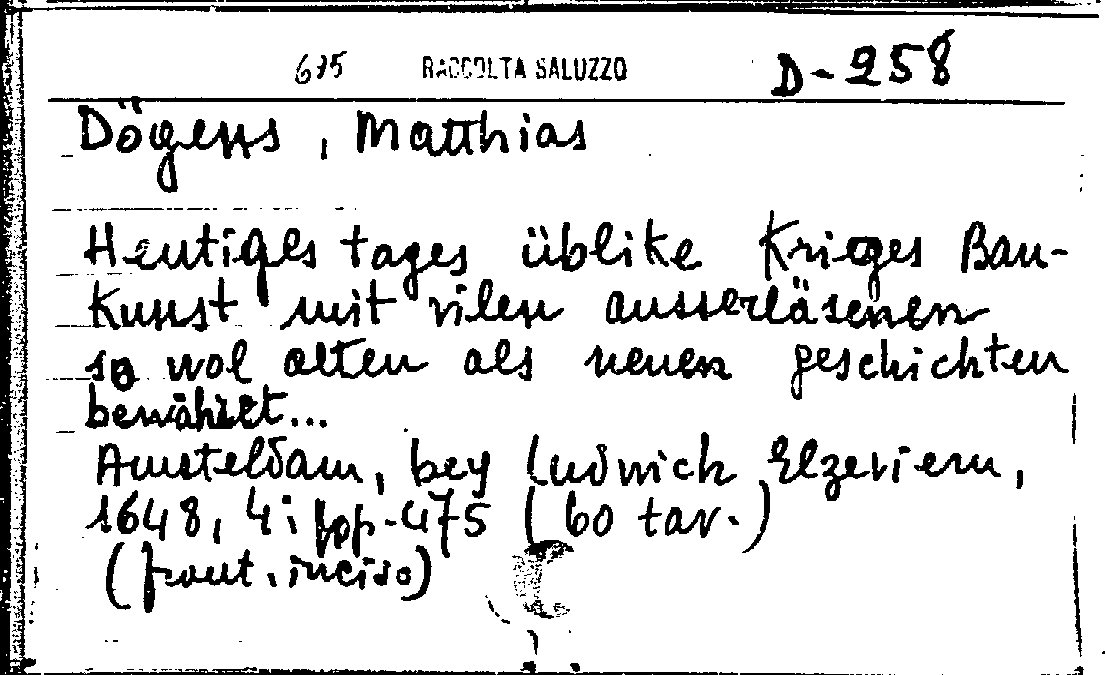 675 RACCOLTA SALUZZO D-258
Dögens, Matthias
Heutiges tages üblike Krieges Bau-
Kunst mit vilen ausserläsenen
so wol alten als neuen geschichten
bewähret...
Amsteldam, bey Ludwich Elzeviern,
1648, 4: pp. 475 (60 tav.)
(front. inciso)